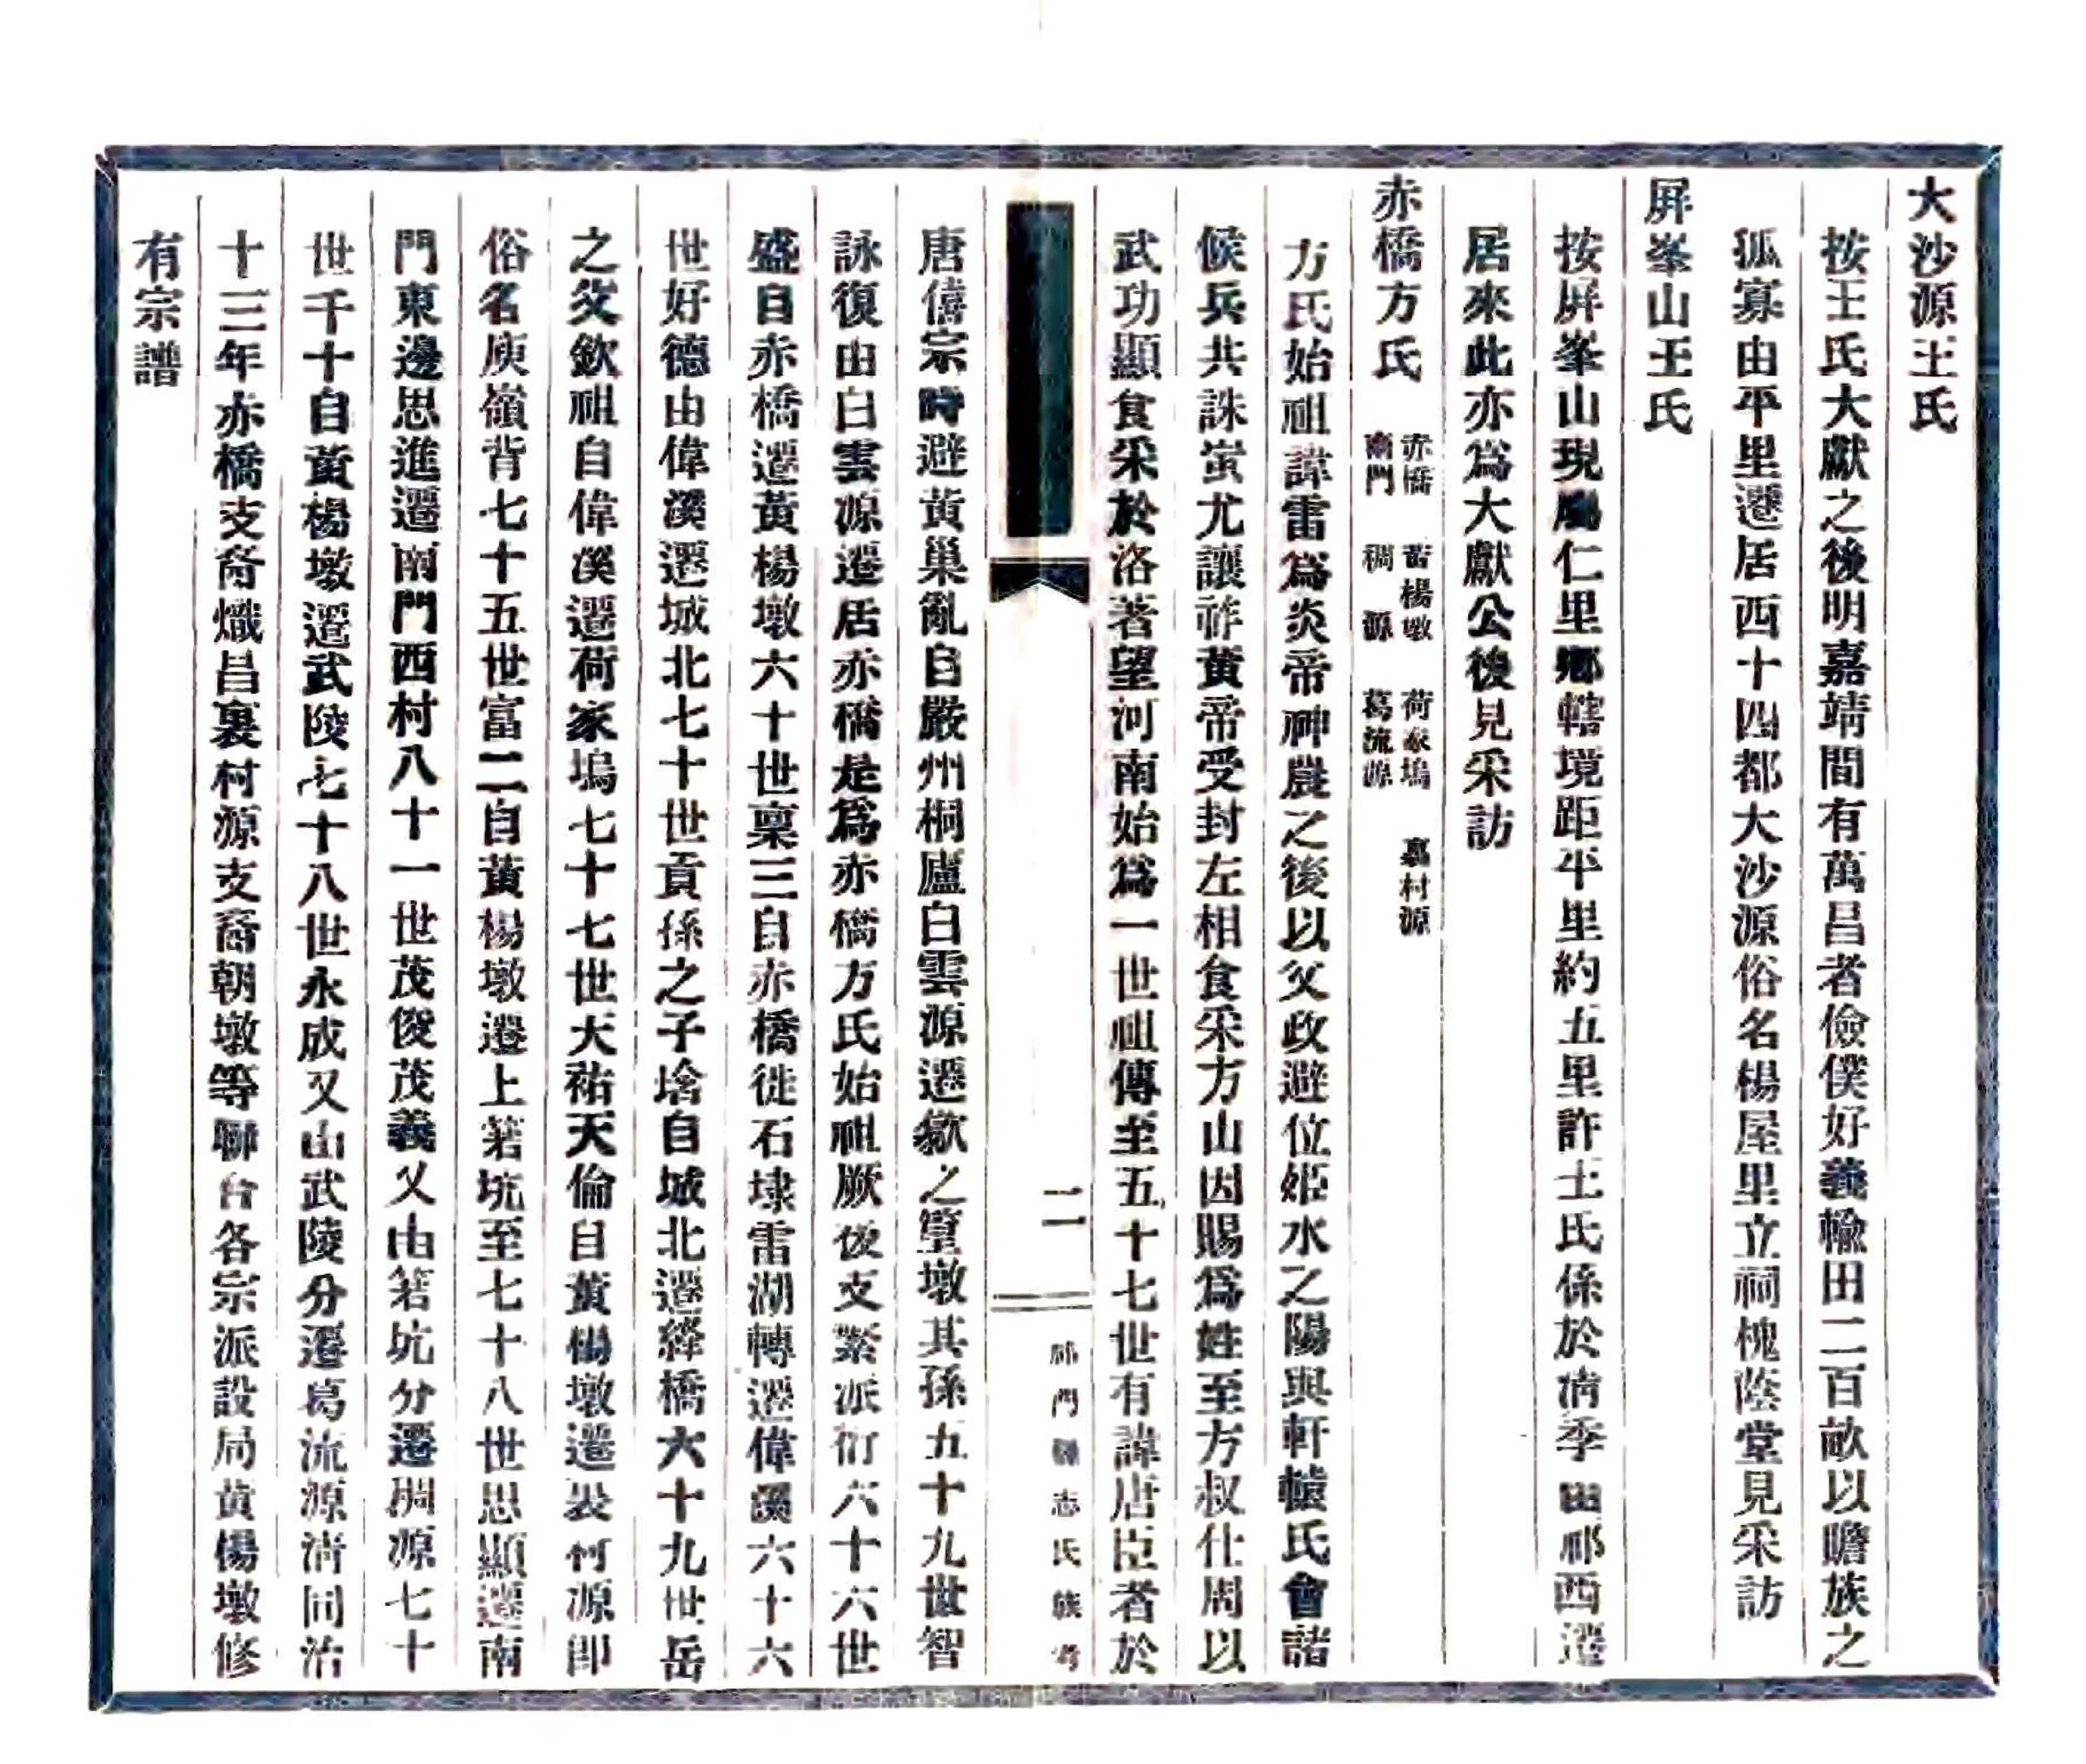 大沙源王氏
按王氏大獻之後明嘉靖間有萬昌者儉僕好義輸田二百畝以贍族之
孤寡由平里遷居西十四都大沙源俗名楊屋里立祠槐蔭堂見采訪
屏峯山王氏
按屏峯山現屬仁里鄉轄境距平里約五里許王氏係於清季由祁西遷
居來此亦爲大獻公後見采訪
赤橋方氏
赤橋 黃楊墩 荷家塢 裏村源
南門 稠源 葛流源
方氏始祖諱雷爲炎帝神農之後以父政避位姬水之陽與軒轅氏會諸
候兵共誅蚩尤讓祚黃帝受封左相食采方山因賜爲姓至方叔仕周以
武功顯食采於洛著望河南始爲一世祖傳至五十七世有諱唐臣者於
二
祁門縣志氏族考
唐僖宗時避黃巢亂自嚴州桐廬白雲源遷歙之篁墩其孫五十九世智
詠復由白雲源遷居赤橋是爲赤橋方氏始祖厥後支繁派衍六十六世
盛自赤橋遷黃楊墩六十世稟三自赤橋徙石埭雷湖轉遷偉溪六十六
世好德由偉溪遷城北七十世貢孫之子墖自城北遷繹橋六十九世岳
之父欽祖自偉溪遷荷家塢七十七世天祐天倫自黃楊墩遷裏村源即
俗名庾嶺背七十五世富二自黃楊墩遷上箬坑至七十八世思顯遷南
門東邊思進遷南門西村八十一世茂俊茂義又由箬坑分遷稠源七十
世千十自黃楊墩遷武陵七十八世永成又由武陵分遷葛流源清同治
十三年赤橋支裔熾昌裏村源支裔朝墩等聯合各宗派設局黃楊墩修
有宗譜